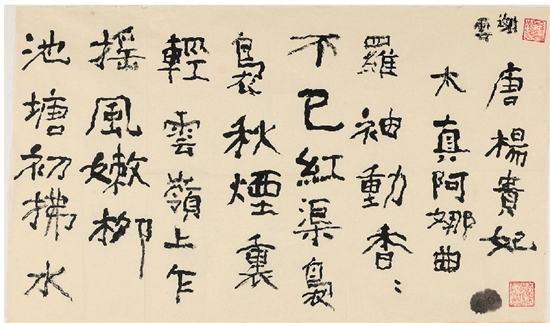 謝雲
唐楊貴妃
太真阿娜曲
羅袖動香〻
不已紅渠裊
裊秋煙裏
輕雲嶺上乍
搖風嫩柳
池塘初拂水